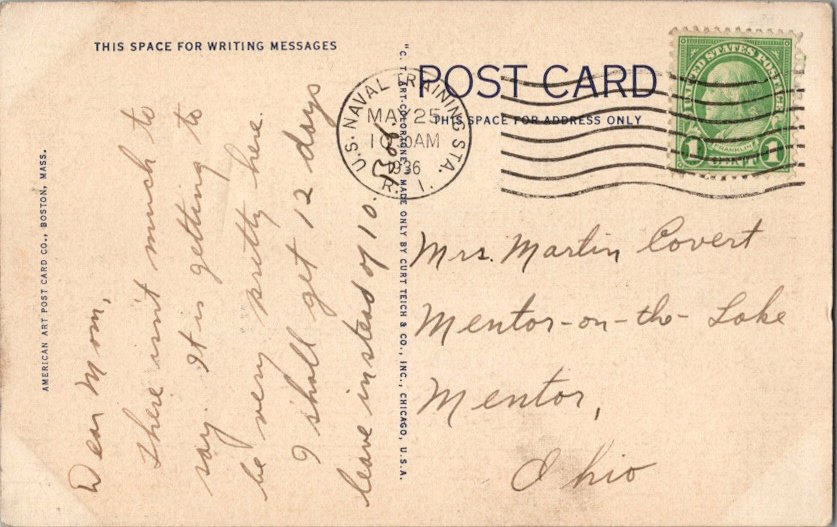 THIS SPACE FOR WRITING MESSAGES
POST CARD
THIS SPACE FOR ADDRESS ONLY
U.S. NAVAL TRAINING STA.
MAY 25
10 AM
1936
R. I.
UNITED STATES POSTAGE
FRANKLIN
1 CENT 1
Dear Mom,
There isn't much to
say. It is getting to
be very pretty here.
I shall get 12 days
leave instead of 10.
Mrs. Martin Covert
Mentor-on-the-Lake
Mentor,
Ohio
AMERICAN ART POST CARD CO., BOSTON, MASS.
"C. T. ART-COLORTONE" MADE ONLY BY CURT TEICH & CO., INC., CHICAGO, U.S.A.